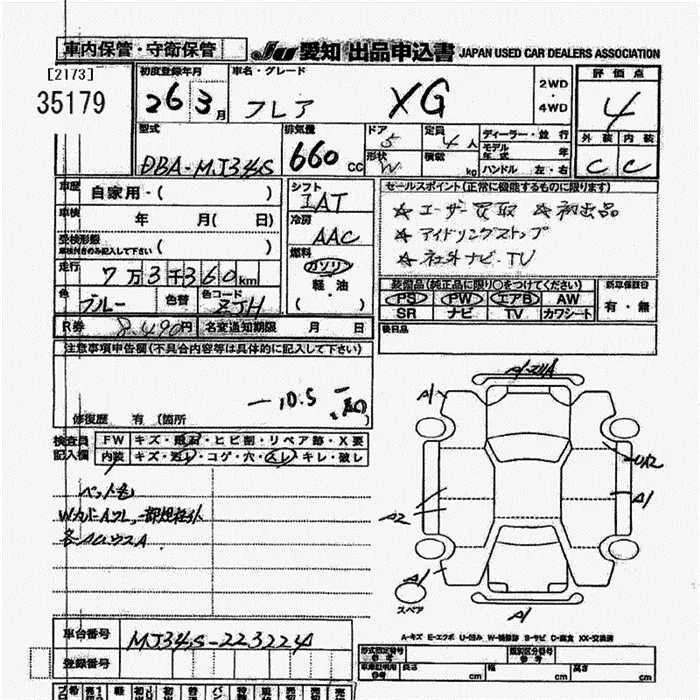 車内保管・守衛保管
JU 愛知 出品申込書 JAPAN USED CAR DEALERS ASSOCIATION
[2173]
35179
初度登録年月 車名・グレード
26 3月 フレア XG 2WD・4WD
評価点
4
外装 内装
C C
型式 DBA-MJ34S 排気量 660 CC
ドア 5 定員 4人 ディーラー・並行
形状 W 積載 kg モデル年式 年
ハンドル 左・右
車歴 自家用・( )
車検 年 月( 日)
受検形態 ( )
車検付きのみ記入して下さい
走行 7万3千360km
色 ブルー 色替 色コード ZJH
R券 8,490円 名変通知期限 月 日
シフト IAT
冷房 AAC
燃料 ガソリン
軽・油
( )
セールスポイント(正常に機能するものに限ります)
☆ユーザー買取 ☆初出品
☆アイドリングストップ
☆社外ナビ・TV
装備品(純正品に限り○をつけてください) 新車保証書
PS PW エアB AW 有・無
SR ナビ TV カワシート
後日品
注意事項申告欄(不具合内容等は具体的に記入して下さい)
10.5
修復歴 有(箇所
検査員記入欄 FW キズ・飛石・ヒビ割・リペア跡・X要
内装 キズ・汚レ・コゲ・穴・スレ・キレ・破レ
A1
A1
U2
A1
A2
A1
A1
スペア
A-キズ E-エクボ U-凹み W-補修跡 S-サビ C-腐食 XX-交換済
車台番号 MJ34S-223224
登録番号
型式指定番号 参考 類別区分番号 参考
車庫証明用 参考 長さ cm 幅 cm 高さ cm